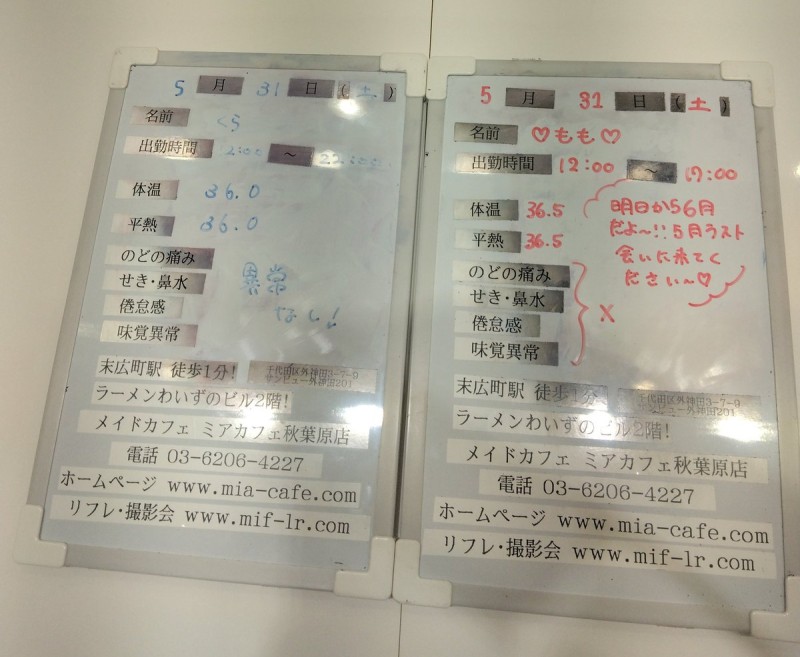 5月31日(土)
名前 くら
出勤時間 2:00 ～ 22:00
体温 36.0
平熱 36.0
のどの痛み
せき・鼻水
倦怠感
味覚異常
異常
なし!
末広町駅 徒歩1分! 千代田区外神田3-7-9
サンビュー外神田201
ラーメンわいずのビル2階!
メイドカフェ ミアカフェ秋葉原店
電話 03-6206-4227
ホームページ www.mia-cafe.com
リフレ・撮影会 www.mif-lr.com
5月31日(土)
名前 ♡もも♡
出勤時間 12:00 ～ 17:00
体温 36.5
平熱 36.5
明日から6月
だよ～!!5月ラスト
会いに来てく
ださい～♡
のどの痛み
せき・鼻水
倦怠感
味覚異常
X
末広町駅 徒歩1分 千代田区外神田3-7-9
サンビュー外神田201
ラーメンわいずのビル2階!
メイドカフェ ミアカフェ秋葉原店
電話 03-6206-4227
ホームページ www.mia-cafe.com
リフレ・撮影会 www.mif-lr.com